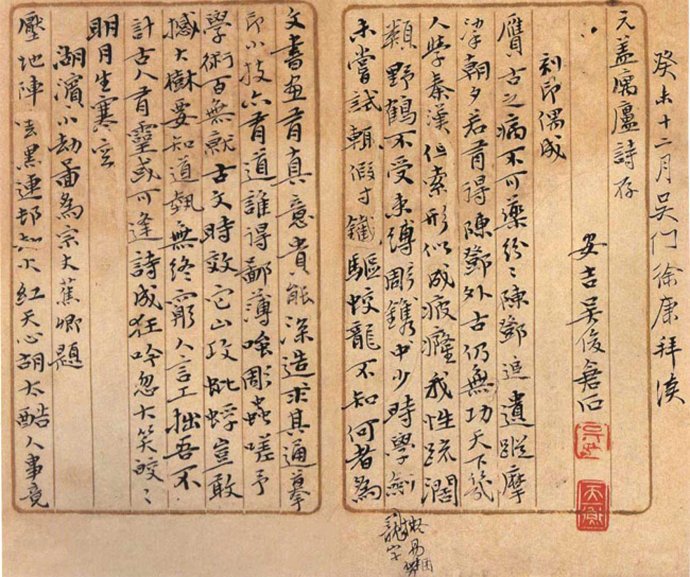 癸未十二月吴门徐康拜讀
元盖寓廬詩存
安吉吴俊倉石
刻印偶成
贋古之病不可藥紛〻陳鄧追遺蹤摩
挲朝夕若有得陳鄧外古仍無功天下幾
人學秦漢但索形似成疲癃我性疏闊
類野鶴不受束縛彫鐫中少時學劍
未嘗試輒假寸鐵驅蛟龍不知何者為
文書畫有真意貴能深造求其通摹
印小技亦有道誰得鄙薄嗤彫蟲嗟予
學術百無就古文時效它山攻蚍蜉豈敢
撼大樹要知道藝無終窮人言工拙吾不
計古人有靈或可逢詩成狂吟忽大笑皎〻
明月生寒空
湖濱小劫啚為宗丈蕉卿題
壓地陣雲黑連邨火紅天心胡太酷人事竟
龍字